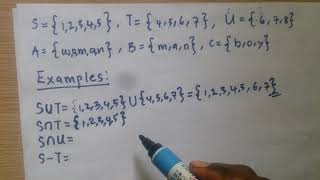 S = {1,2,3,4,5} , T = {4,5,6,7} , U = {6,7,8}
A = {w,o,m,a,n} , B = {m,a,n} , C = {b,o,y}
Examples:
S∪T = {1,2,3,4,5} ∪ {4,5,6,7} = {1,2,3,4,5,6,7}
S∩T = {1,2,3,4,5}
S∩U =
S-T =